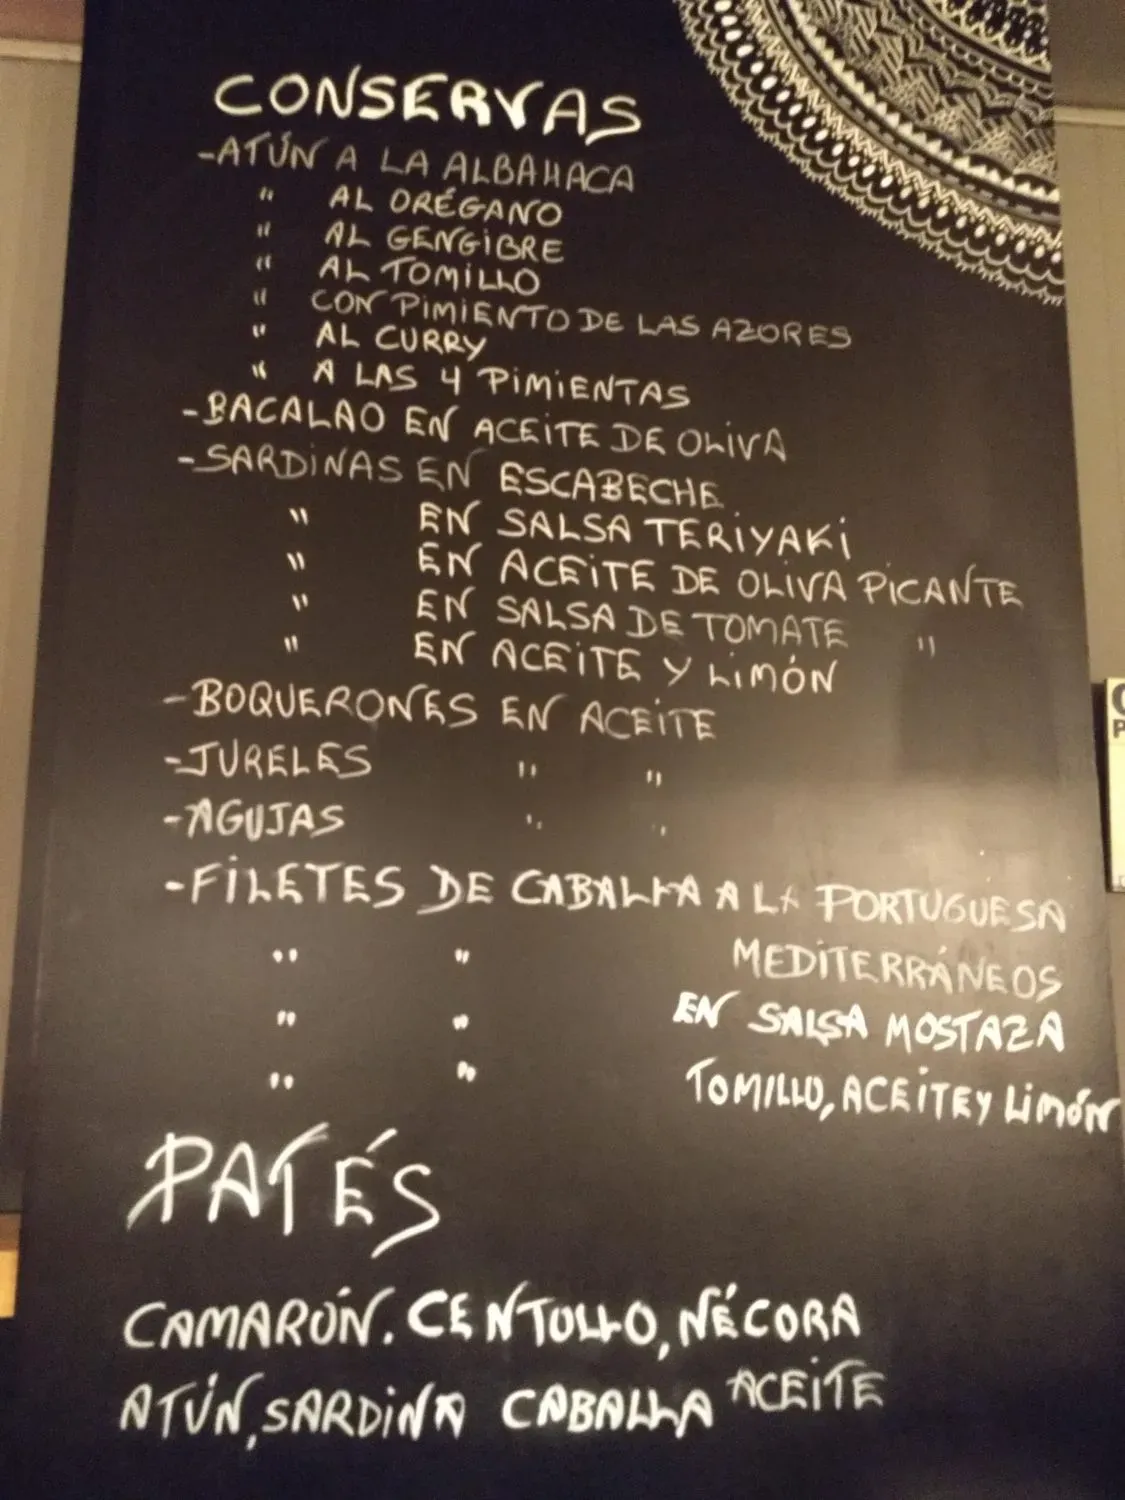 CONSERVAS
-ATÚN A LA ALBAHACA
" AL ORÉGANO
" AL GENGIBRE
" AL TOMILLO
" CON PIMIENTO DE LAS AZORES
" AL CURRY
" A LAS 4 PIMIENTAS
-BACALAO EN ACEITE DE OLIVA
-SARDINAS EN ESCABECHE
" EN SALSA TERIYAKI
" EN ACEITE DE OLIVA PICANTE
" EN SALSA DE TOMATE "
" EN ACEITE Y LIMÓN
-BOQUERONES EN ACEITE
-JURELES " "
-AGUJAS " "
-FILETES DE CABALLA A LA PORTUGUESA
" " MEDITERRÁNEOS
" " EN SALSA MOSTAZA
" " TOMILLO, ACEITE Y LIMÓN
PATÉS
CAMARÓN. CENTOLLO, NÉCORA
ATÚN, SARDINA CABALLA ACEITE